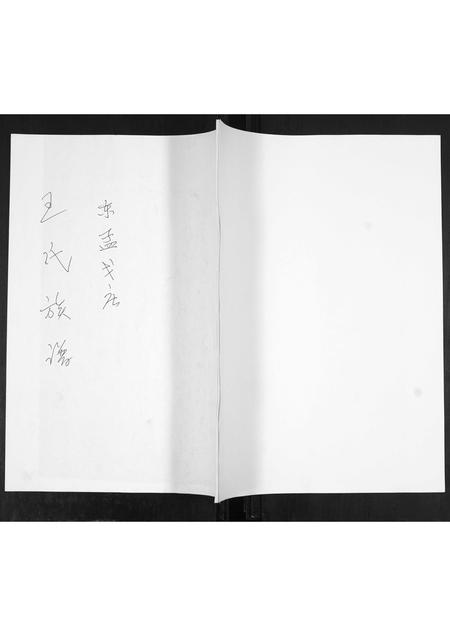 东孟戈庄
王氏族谱